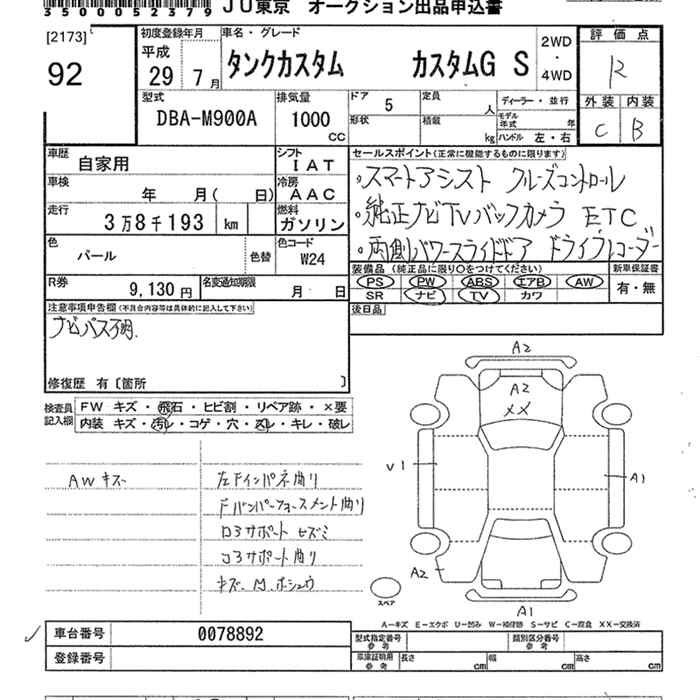 3500052379 JU東京 オークション出品申込書
[2173]
92
初度登録年月
平成
29年 7月
車名・グレード
タンクカスタム カスタムG S
2WD
・
4WD
評価点
R
外装 内装
C B
型式
DBA-M900A
排気量
1000
CC
ドア 5
定員 人
形状
積載 kg
ディーラー・並行
モデル年式 年
ハンドル 左・右
車歴
自家用
シフト
IAT
車検
年 月( 日)
冷房
AAC
走行
3万8千193 km
燃料
ガソリン
色
パール
色替
色コード
W24
R券
9,130 円
名変通知期限
月 日
セールスポイント(正常に機能するものに限ります)
・スマートアシスト クルーズコントロール
・純正ナビTVバックカメラ ETC
・両側パワースライドドア ドライブレコーダー
装備品 (純正品に限り○をつけてください)
PS PW ABS エアB AW
SR ナビ TV カワ
新車保証書
有・無
後日品
注意事項申告欄(不具合内容等は具体的に記入して下さい)
ナビパス不明
修復歴 有〔箇所 〕
検査員
記入欄
FW キズ・飛石・ヒビ割・リペア跡・×要
内装 キズ・汚レ・コゲ・穴・スレ・キレ・破レ
AWキズ
左Fインパネ曲り
Fバンパーフォースメント曲り
ロアサポート ヒズミ
コアサポート曲り
キズ、凹、ホシュウ
A2
A2
XX
V1
A1
A2
A1
スペア
A-キズ E-エクボ U-凹み W-補修跡 S-サビ C-腐食 XX-交換済
車台番号
0078892
登録番号
型式指定番号
参考
類別区分番号
参考
車庫証明用
参考
長さ cm
幅 cm
高さ cm